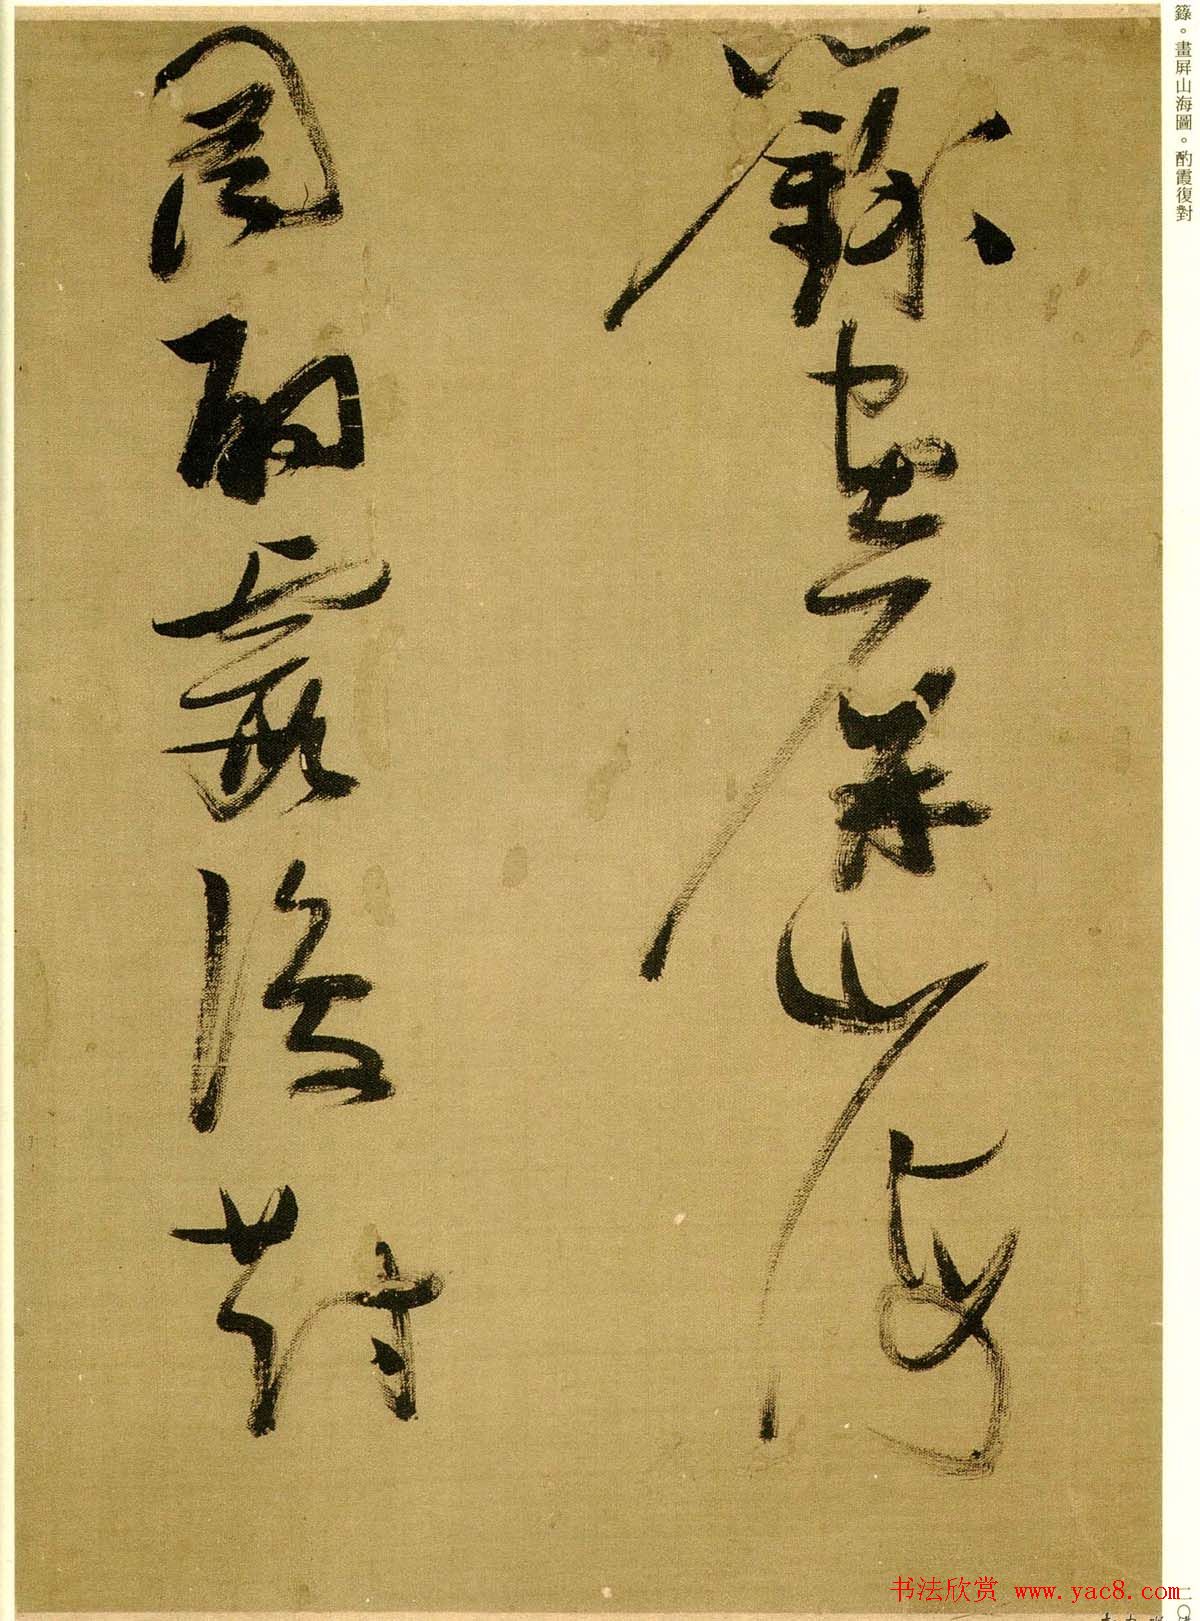 籙畫屏山海
圖酌霞復對
籙。畫屏山海圖。酌霞復對
书法欣赏 www.yac8.com
二〇